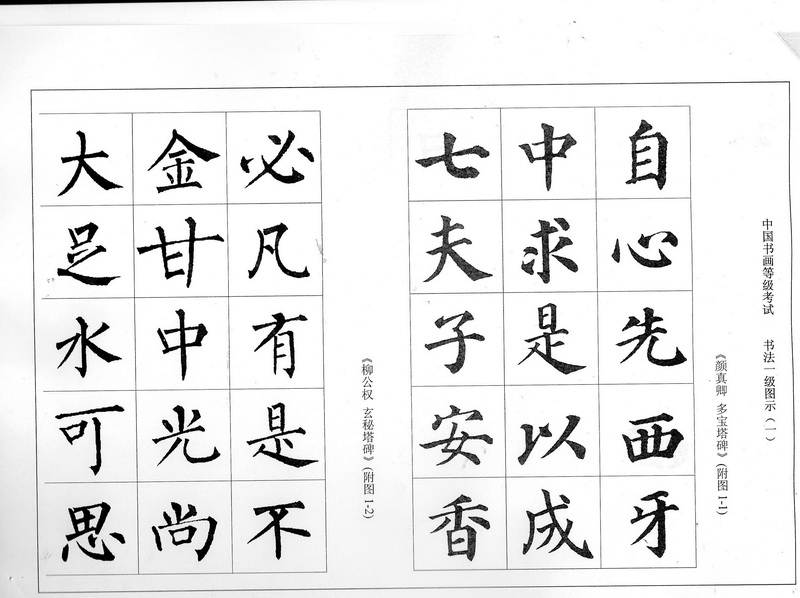 中国书画等级考试 书法一级图示（一）
《颜真卿 多宝塔碑》（附图1-1）
自心先西牙
中求是以成
七夫子安香
《柳公权 玄秘塔碑》（附图1-2）
必凡有是不
金甘中光尚
大足水可思